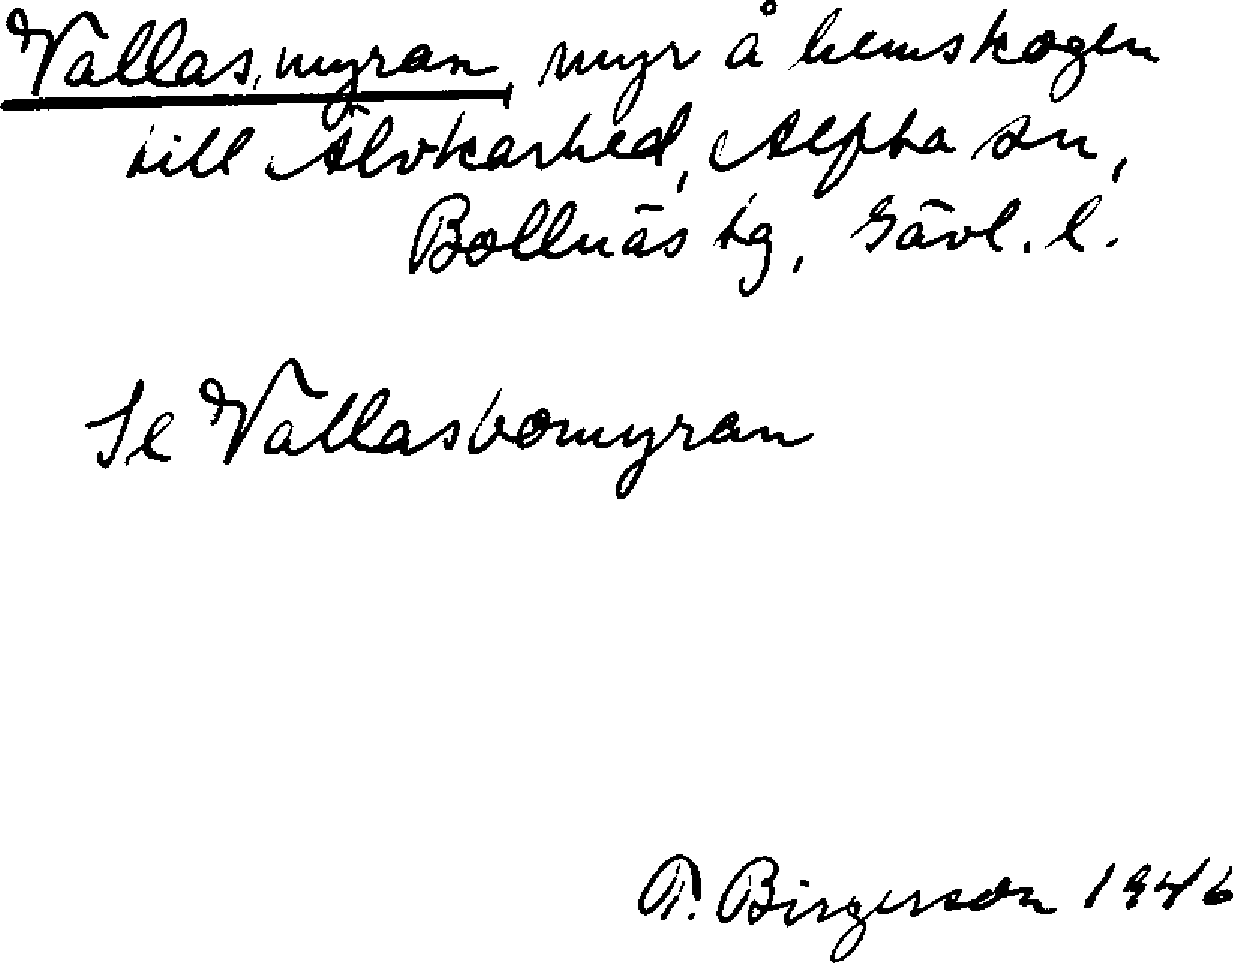 Vallas,myran, myr å hemskogen
till Älvkarhed, Alfta sn,
Bollnäs tg, Gävl. l.
Se Vallasbomyran
T. Birgerson 1946